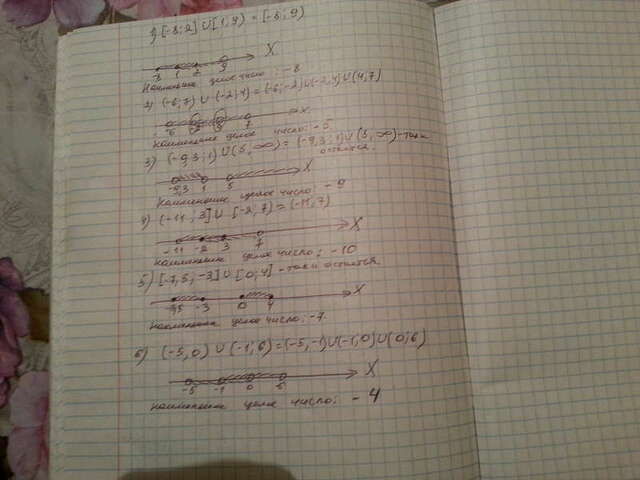 1) [-8; 2] U [1; 9) = [-8; 9)
-8 1 2 9 X
Наименьшее целое число: -8
2) (-6; 7) U (-2; 4) = (-6; -2) U (-2; 4) U (4; 7)
-6 7 x
наименьшее целое число: -5
3) (-9,3; 1) U (5, ∞) = (-9,3; 1) U (5, ∞) - так и
останется.
-9,3 1 5 X
наименьшее целое число: -9
4) (-11; 3] U [-2; 7) = (-11; 7)
-11 -2 3 7 X
наименьшее целое число: -10
5) [-7,5; -3] U [0; 4] - так и остается
-3 0 4 X
наименьшее целое число: -7
6) (-5, 0) U (-1; 6) = (-5, -1) U (-1, 0) U (0; 6)
-5 -1 0 6 X
наименьшее целое число: -4